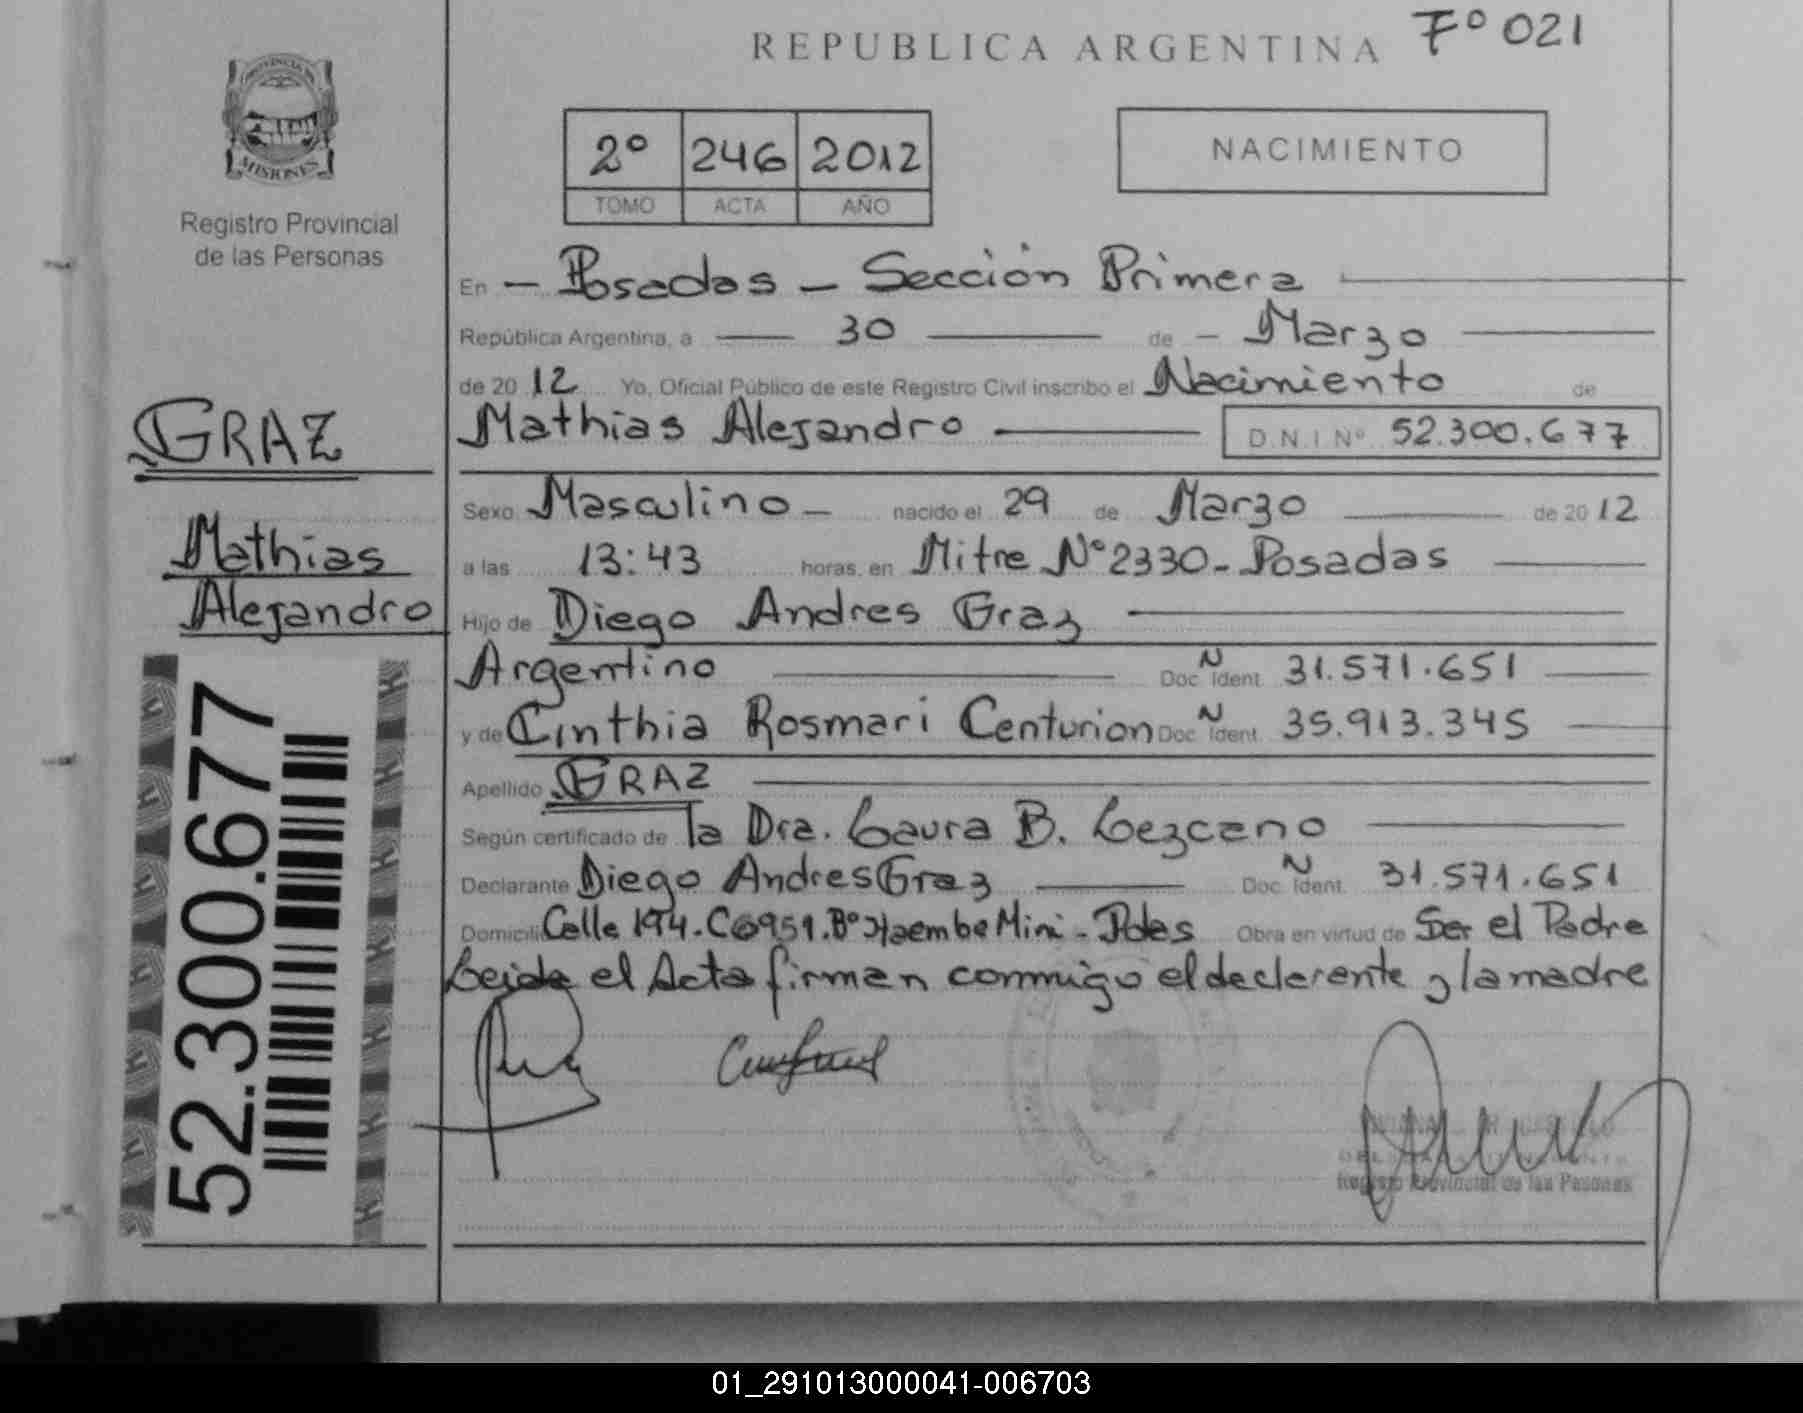 REPUBLICA ARGENTINA Fº 021
PROVINCIA DE
MISIONES
Registro Provincial
de las Personas
2º 246 2012
TOMO ACTA AÑO
NACIMIENTO
En - Posadas - Sección Primera
República Argentina, a 30 de - Marzo
de 20 12 Yo, Oficial Público de este Registro Civil inscribo el Nacimiento de
Mathias Alejandro D.N.I Nº 52.300.677
GRAZ
Mathias
Alejandro
52.300.677
Sexo Masculino - nacido el 29 de Marzo de 20 12
a las 13:43 horas, en Mitre Nº 2330 - Posadas
Hijo de Diego Andres Graz
Argentino Doc. Ident. N 31.571.651
y de Cinthia Rosmari Centurion Doc. Ident. N 35.913.345
Apellido GRAZ
Según certificado de la Dra. Laura B. Lezcano
Declarante Diego Andres Graz Doc. Ident. N 31.571.651
Domicilio Calle 194. C 6951. Bº Itaembe Mini - Pdas Obra en virtud de Ser el Padre
Leida el Acta firman conmigo el declarante y la madre
Registro Provincial de las Personas
01_291013000041-006703